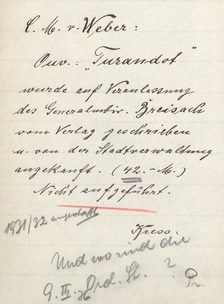 C. M. v. Weber:
Ouv. "Turandot"
wurde auf Veranlassung
des Generalmdir. Breisach
vom Verlag geschrieben
u. von der Stadtverwaltung
angekauft. (42.-M.)
Nicht aufgeführt.
1931/32 angeschafft
Kreso.
Und wo sind die
Ord. St. ?
9. IX. 36 Pr.